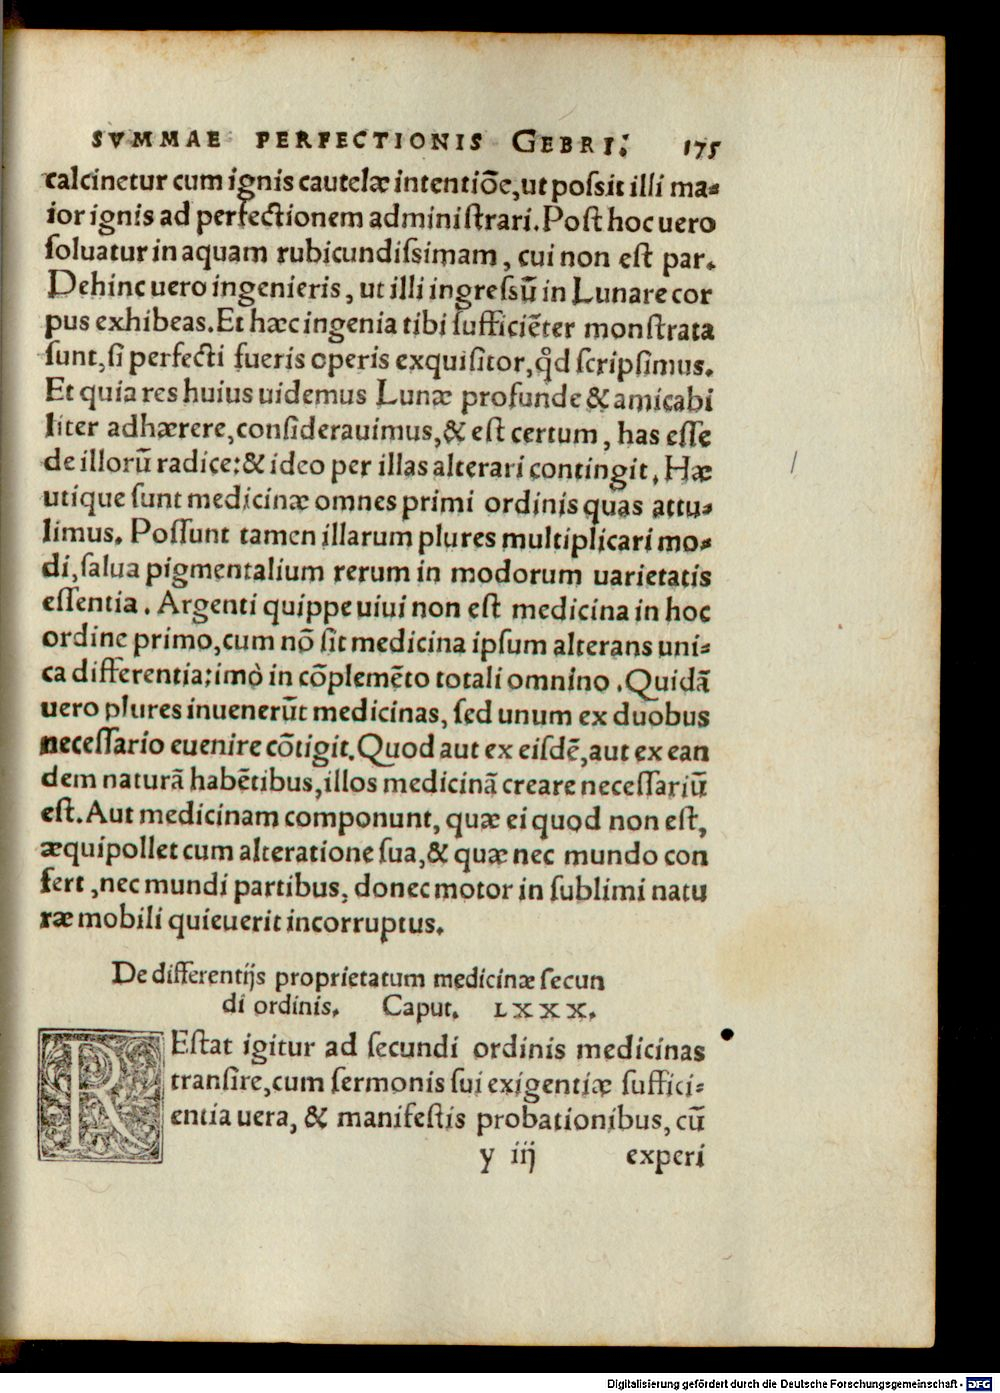 SVMMAE PERFECTIONIS GEBRI. 175
calcinetur cum ignis cautelæ intentiõe, ut poſsit illi ma⸗
ior ignis ad perfectionem adminiſtrari. Poſt hoc uero
ſoluatur in aquam rubicundiſsimam, cui non eſt par.
Dehinc uero ingenieris, ut illi ingreſsũ in Lunare cor
pus exhibeas. Et hæc ingenia tibi ſufficiẽter monſtrata
ſunt, ſi perfecti fueris operis exquiſitor, qd̃ ſcripſimus.
Et quia res huius uidemus Lunæ profunde & amicabi
liter adhærere, conſiderauimus, & eſt certum, has eſſe
de illorũ radice: & ideo per illas alterari contingit. Hæ
utique ſunt medicinæ omnes primi ordinis quas attu⸗
limus. Poſſunt tamen illarum plures multiplicari mo⸗
di, ſalua pigmentalium rerum in modorum uarietatis
eſſentia. Argenti quippe uiui non eſt medicina in hoc
ordine primo, cum nõ ſit medicina ipſum alterans uni⸗
ca differentia: imò in cõplemẽto totali omnino. Quidã
uero plures inuenerũt medicinas, ſed unum ex duobus
neceſſario euenire cõtigit. Quod aut ex eiſdẽ, aut ex ean
dem naturã habẽtibus, illos medicinã creare neceſſariũ
eſt. Aut medicinam componunt, quæ ei quod non eſt,
æquipollet cum alteratione ſua, & quæ nec mundo con
fert, nec mundi partibus, donec motor in ſublimi natu
ræ mobili quieuerit incorruptus.
De differentijs proprietatum medicinæ ſecun
di ordinis. Caput. LXXX.
REſtat igitur ad ſecundi ordinis medicinas
tranſire, cum ſermonis ſui exigentiæ ſuffici⸗
entia uera, & manifeſtis probationibus, cũ
y iij experi
Digitalisierung gefördert durch die Deutsche Forschungsgemeinschaft - DFG